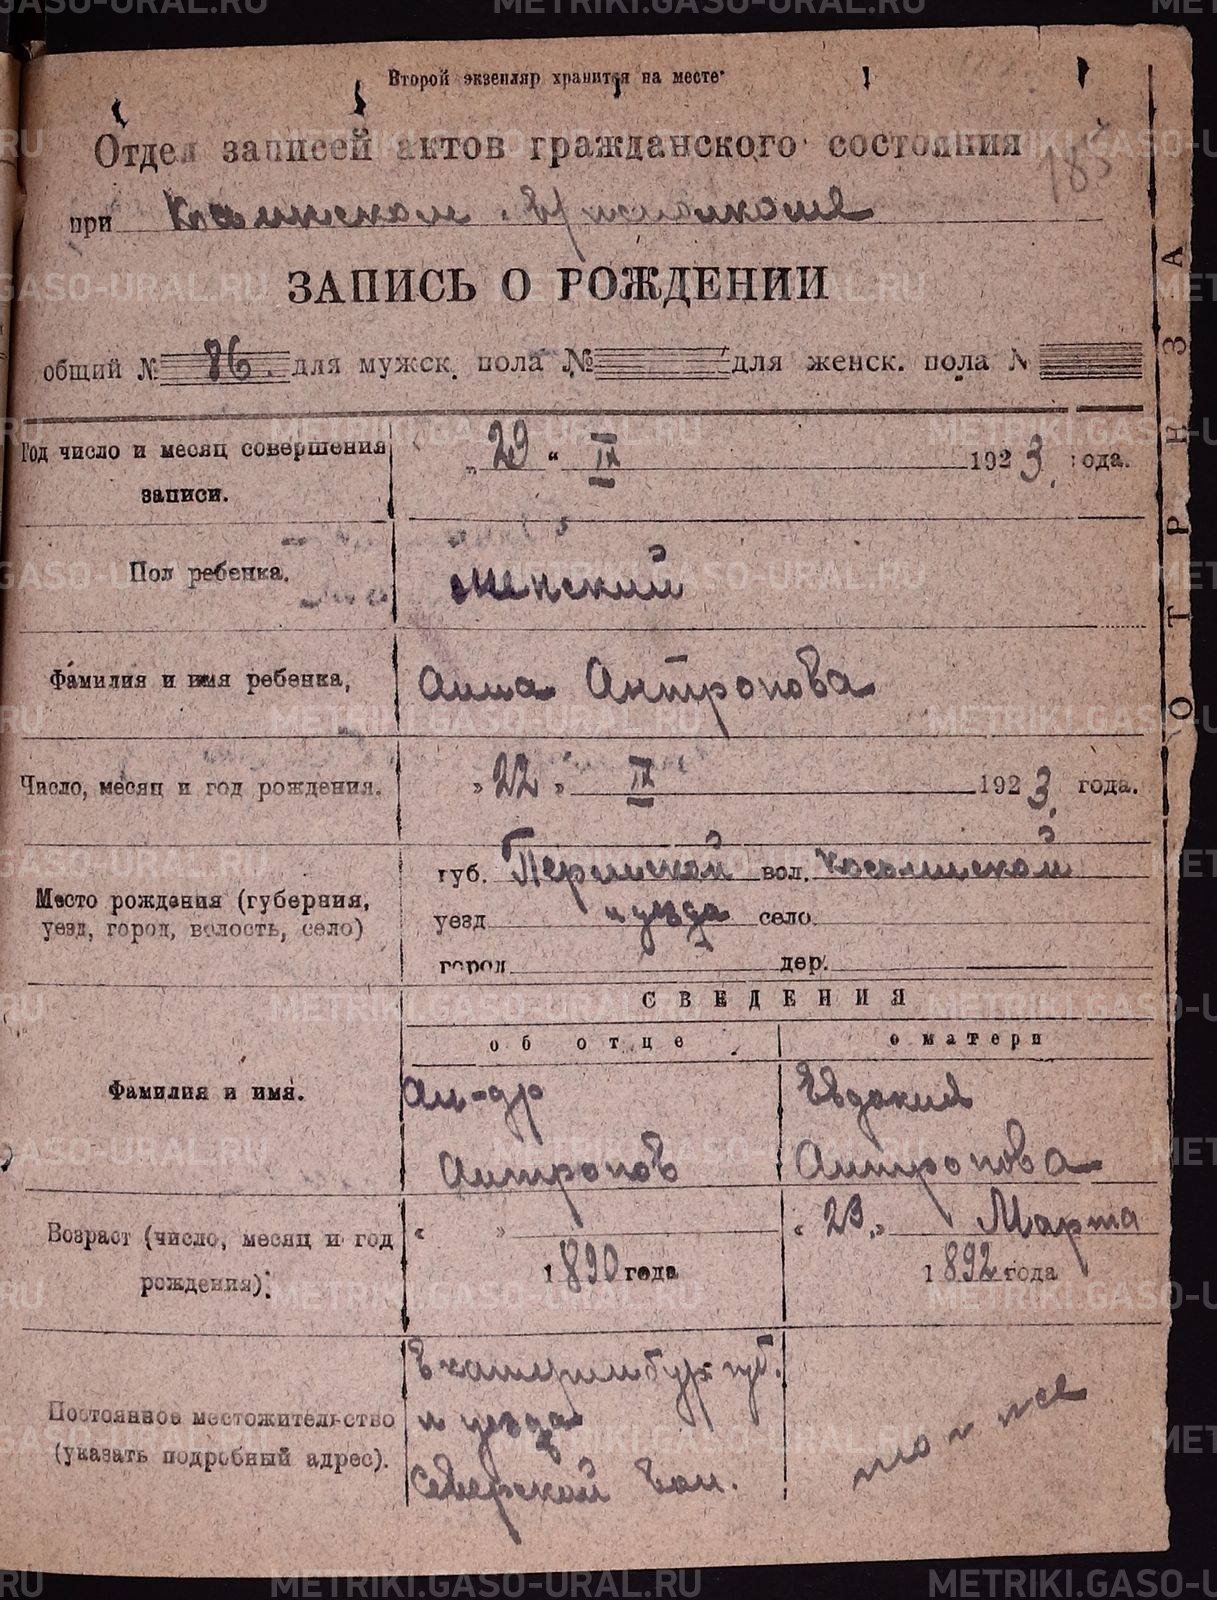 Второй экземпляр хранится на месте
Отдел записей актов гражданского состояния
185
при
ЗАПИСЬ О РОЖДЕНИИ
общий № 86. для мужск. пола № для женск. пола №
Год число и месяц совершения записи.
„ 29 “ IX 1923. года.
Пол ребенка.
женский
Фамилия и имя ребенка,
Анна Антропова
Число, месяц и год рождения.
„ 22 „ IX 1923. года.
Место рождения (губерния, уезд, город, волость, село)
губ. Пермской вол.
уезд и уезда село
город дер.
СВЕДЕНИЯ
об отце
о матери
Фамилия и имя.
Ал-др
Антропов
Евдокия
Антропова
Возраст (число, месяц и год рождения).
« » 1890 года
« 23 » Марта 1892 года
Постоянное местожительство (указать подробный адрес).
Екатеринбург губ.
и уезда
Северской вол.
то же
ОТРЫЗАН
METRIKI.GASO-URAL.RU